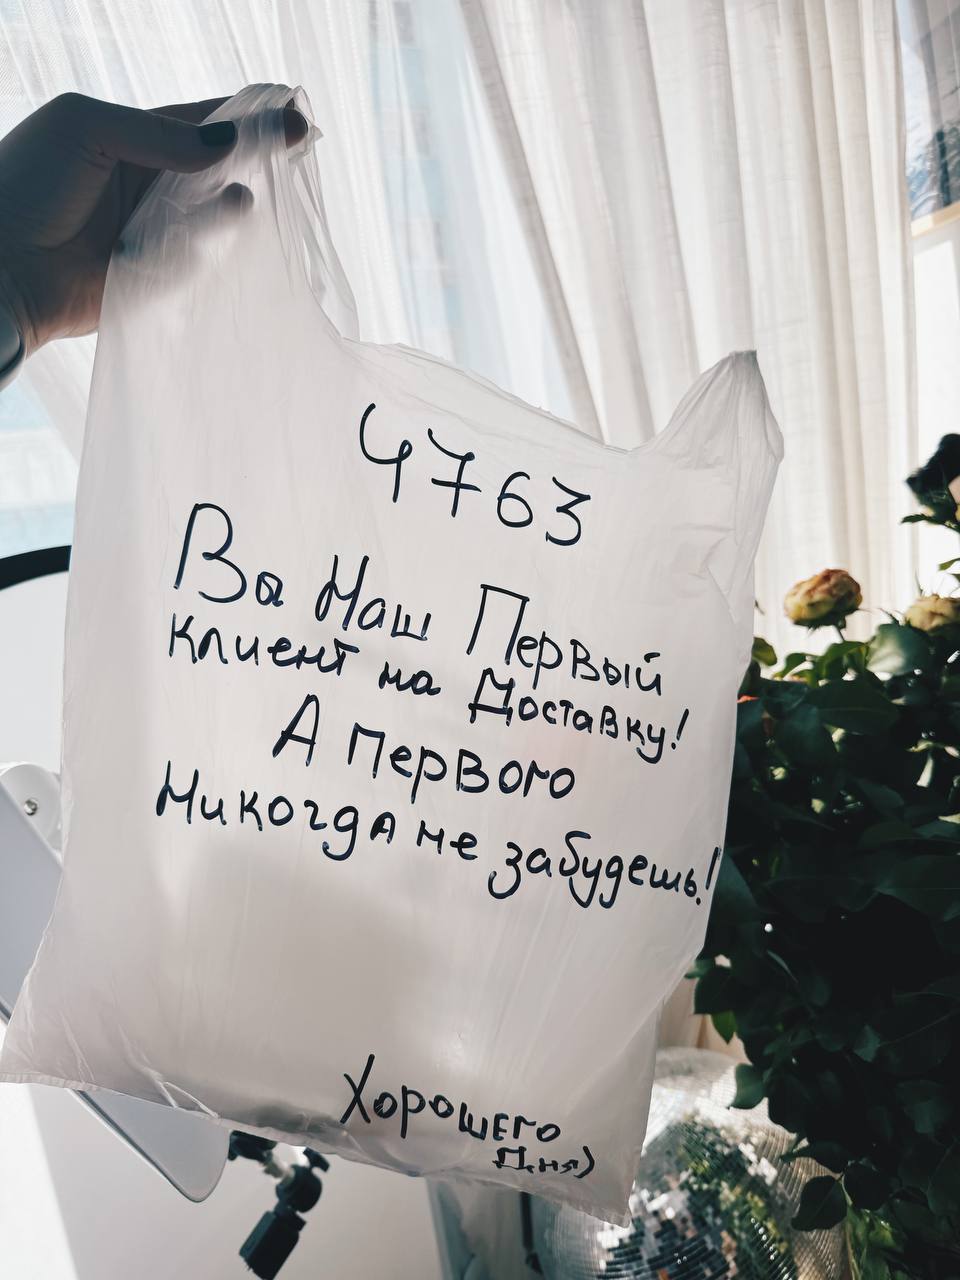 4763
Вы Наш Первый
Клиент на Доставку!
А первого
Никогда не забудешь!
Хорошего
Дня)